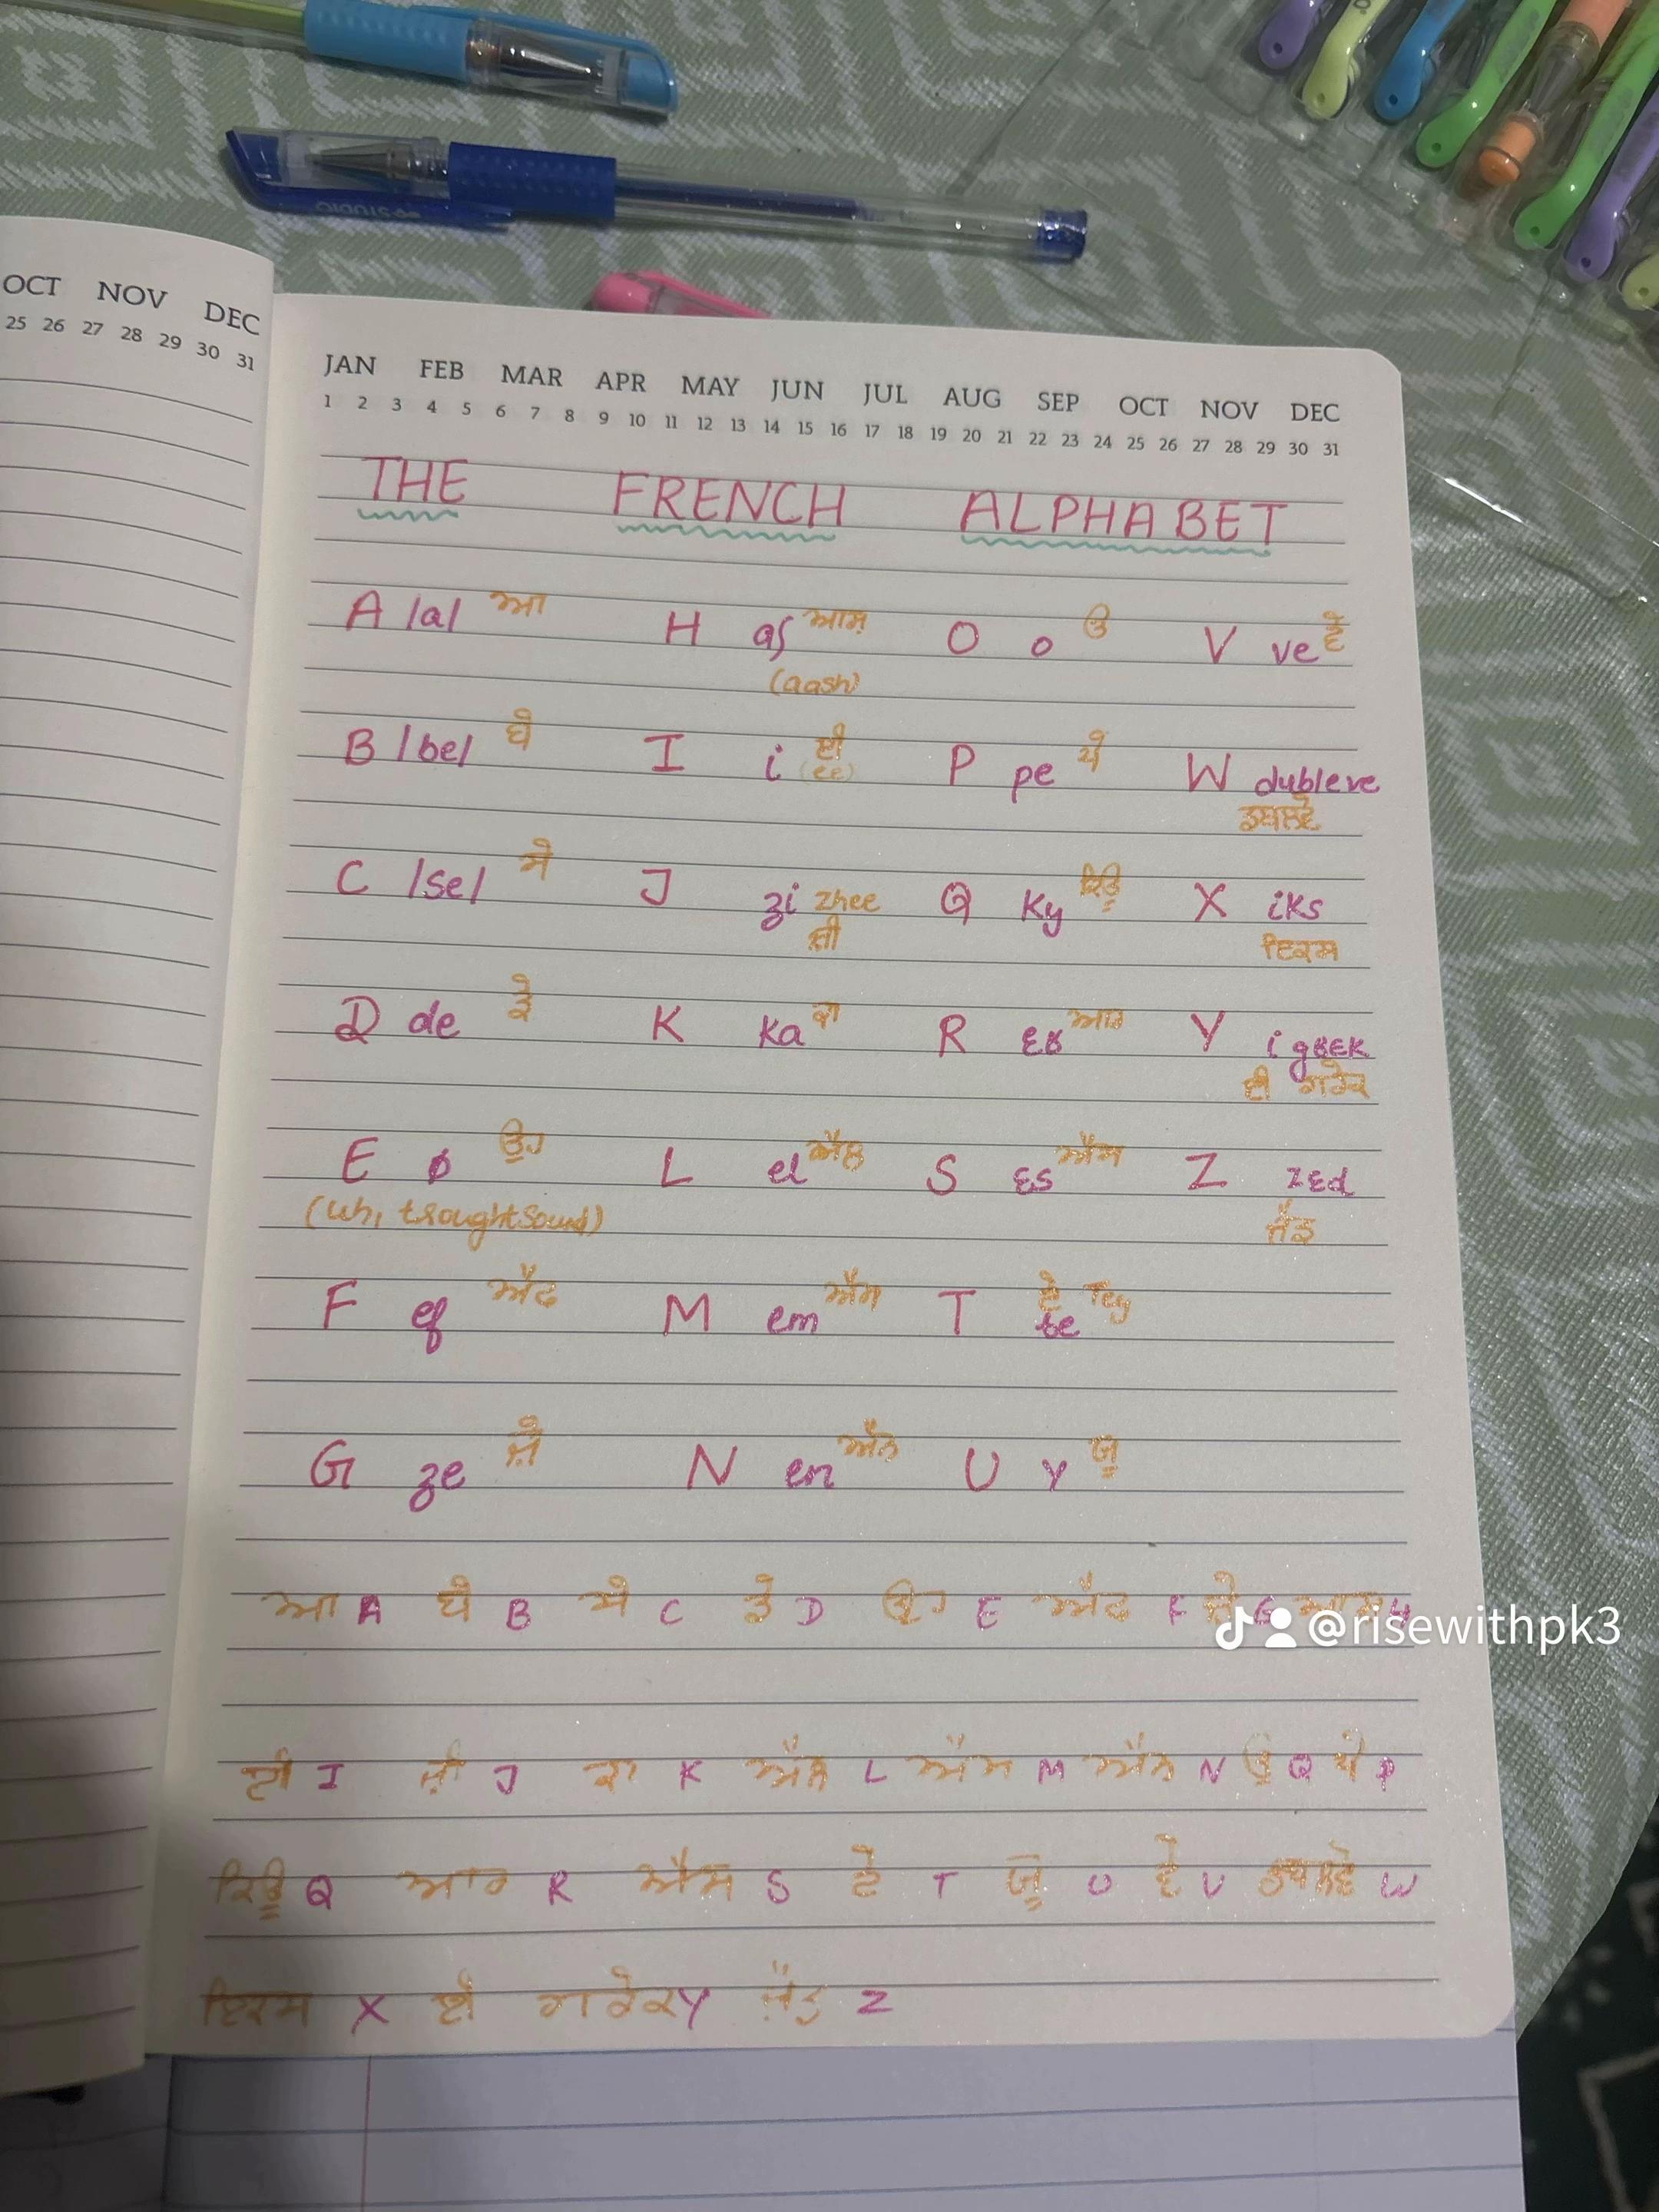 OCT NOV DEC
25 26 27 28 29 30 31
JAN FEB MAR APR MAY JUN JUL AUG SEP OCT NOV DEC
1 2 3 4 5 6 7 8 9 10 11 12 13 14 15 16 17 18 19 20 21 22 23 24 25 26 27 28 29 30 31
THE FRENCH ALPHABET
A /a/ ਆ H aʃ ਆਸ਼ O o ਓ V ve ਵੇ
(aash)
B /be/ ਬੇ I i ਈ P pe ਪੇ W dubleve
(ee) ਡਬਲਵੇ
C /se/ ਸੇ J ʒi zhee Q ky ਕਿਊ X iks
ਜ਼ੀ ਇਕਸ
D de ਡੇ K ka ਕਾ R ɛʁ ਆਰ Y i gʁɛk
ਈ ਗਰੇਕ
E ø ਉਹ L el ਐਲ S ɛs ਐਸ Z zɛd
(uh, ਜ਼ੈਡ
F ef ਐਫ M em ਐਮ T te ਟੇ Tay
G ʒe ਜ਼ੇ N en ਐਨ U y ਯੂ
ਆ A ਬੇ B ਸੇ C ਡੇ D ਉਹ E ਐਫ F ਜ਼ੇ G H
@risewithpk3
ਈ I ਜ਼ੀ J ਕਾ K ਐਲ L ਐਮ M ਐਨ N ਓ ਪੇ P
ਕਿਊ Q ਆਰ R ਐਸ S ਟੇ T ਯੂ U ਵੇ V ਡਬਲਵੇ W
ਇਕਸ X ਈ ਗਰੇਕ Y ਜ਼ੈਡ Z